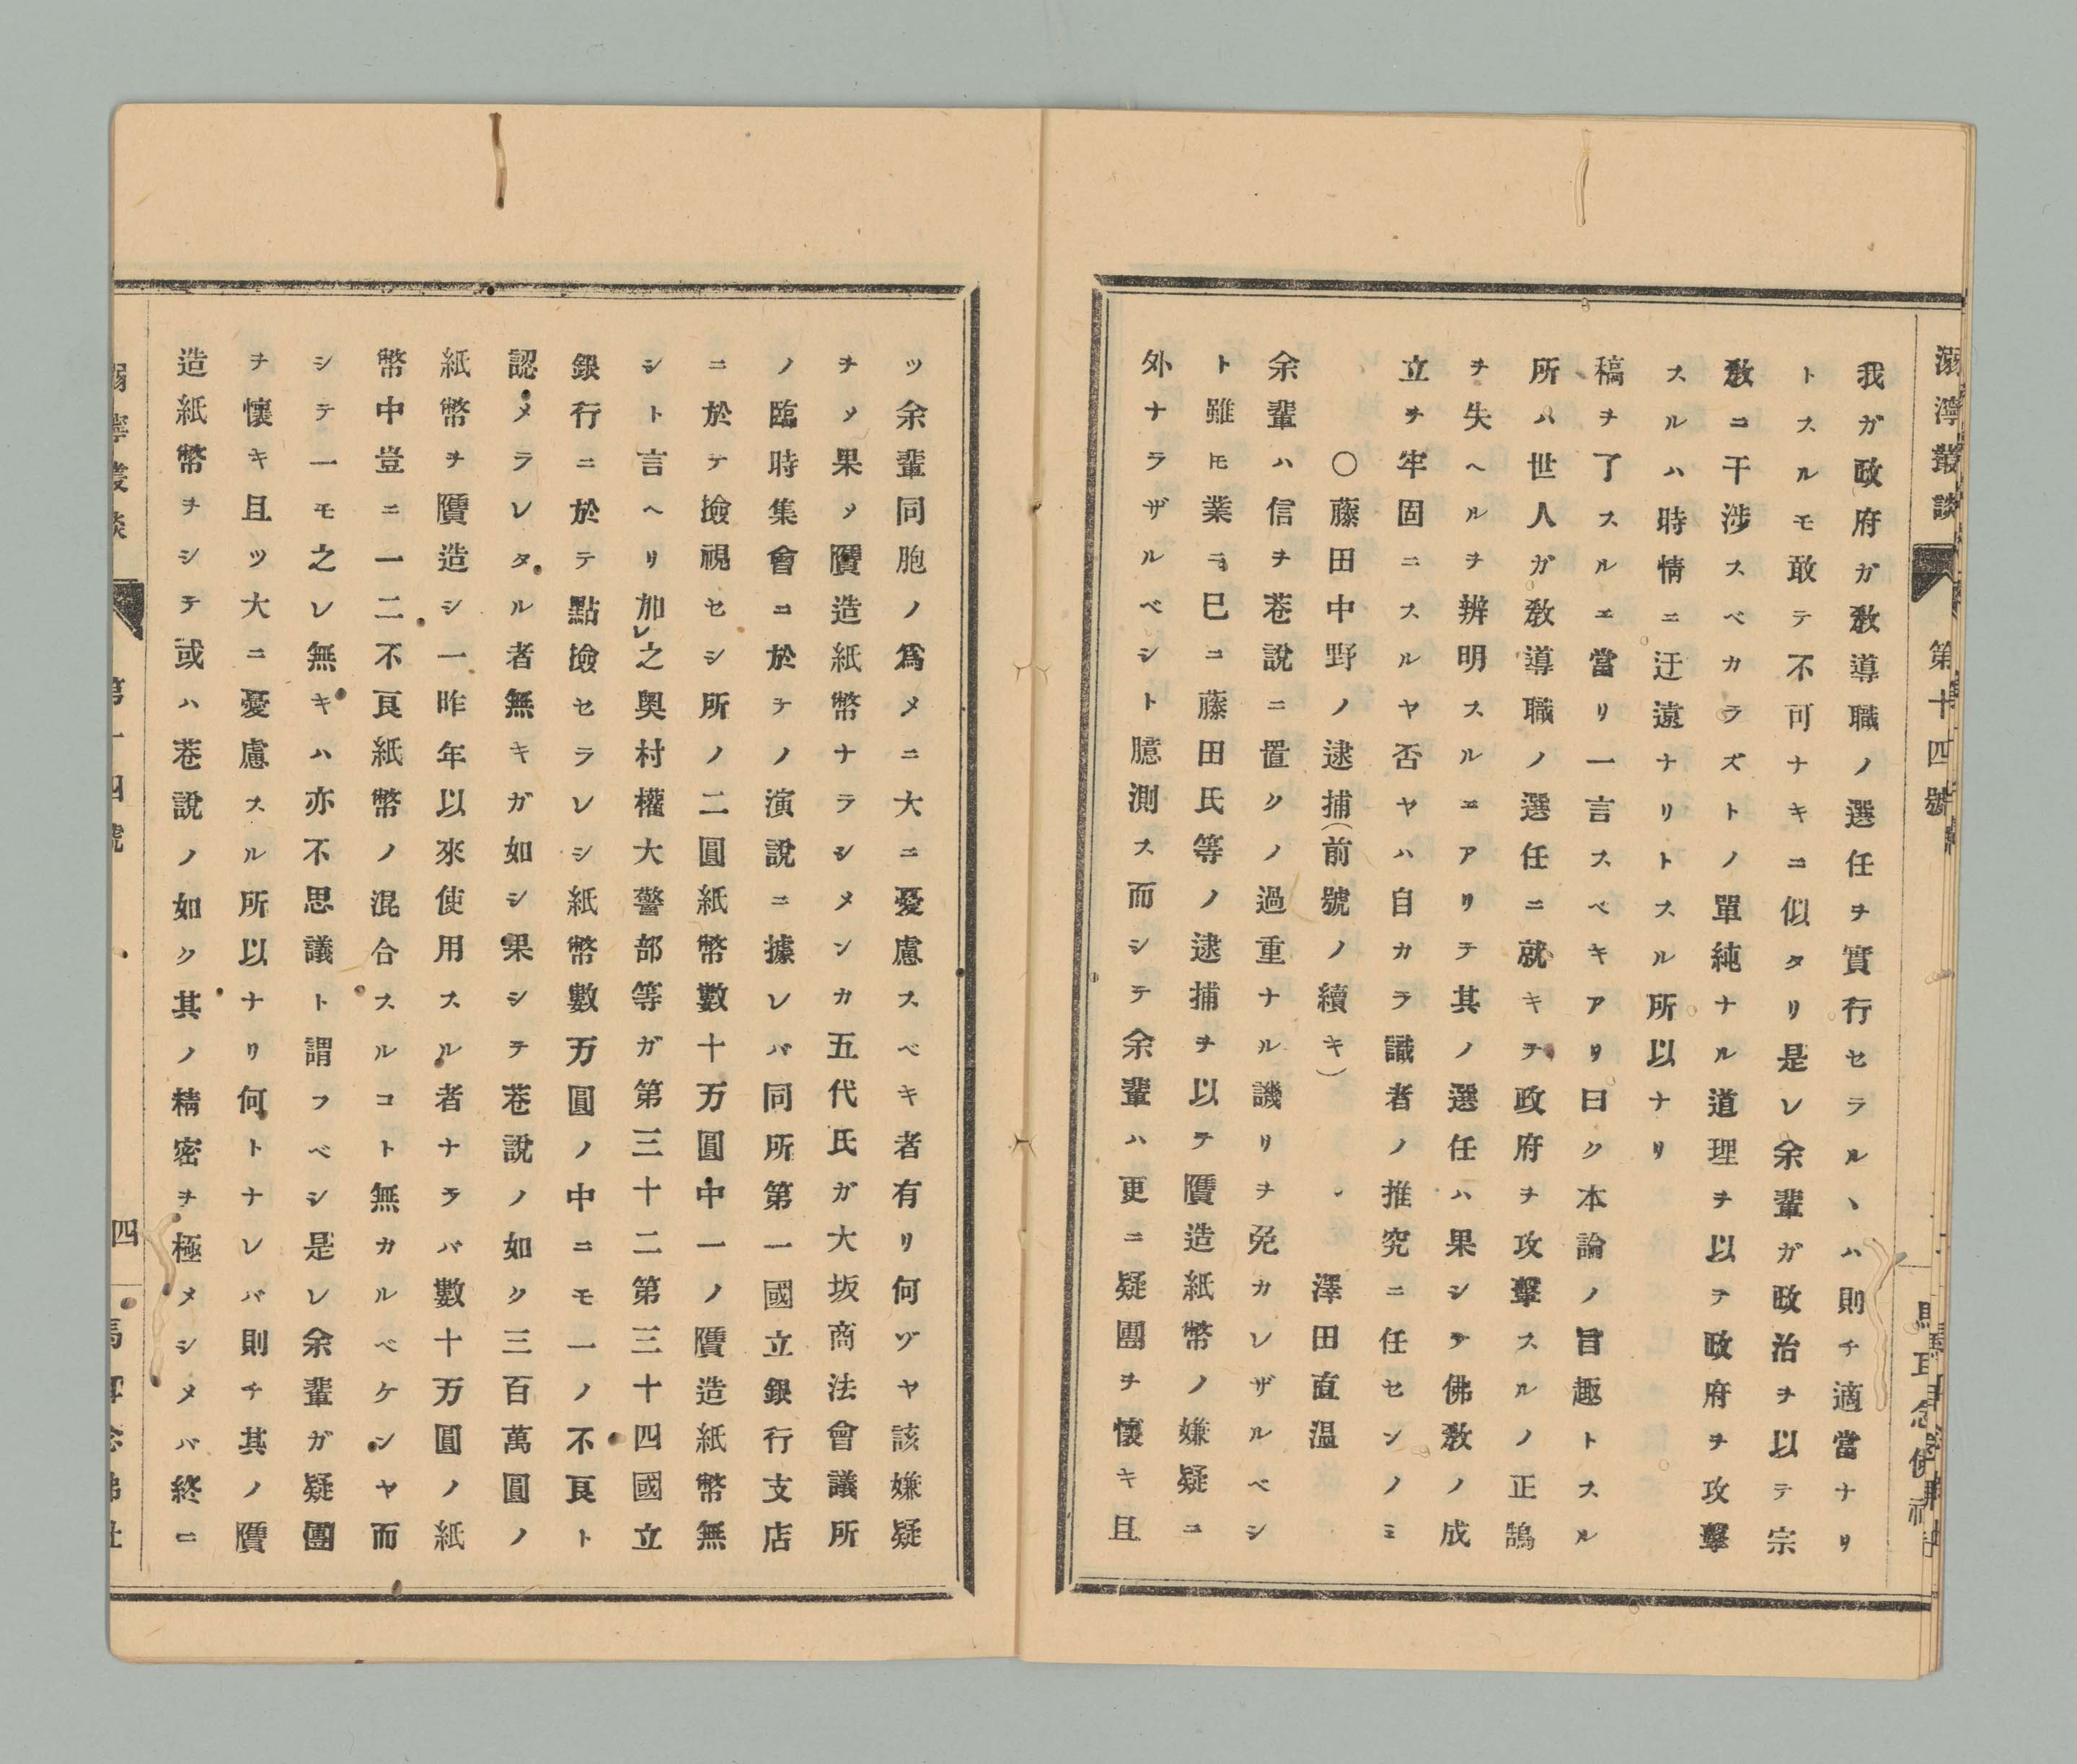 溺濘叢談 第十四號 馬耳念佛社
我ガ政府ガ敎導職ノ選任ヲ實行セラルヽハ則チ適當ナリ
トスルモ敢テ不可ナキニ似タリ是レ余輩ガ政治ヲ以テ宗
敎ニ干涉スベカラズトノ單純ナル道理ヲ以テ政府ヲ攻擊
スルハ時情ニ迂遠ナリトスル所以ナリ
稿ヲ了スルニ當リ一言スベキアリ曰ク本論ノ旨趣トスル
所ハ世人ガ敎導職ノ選任ニ就キテ政府ヲ攻擊スルノ正鵠
ヲ失ヘルヲ辨明スルニアリテ其ノ選任ハ果シテ佛敎ノ成
立ヲ牢固ニスルヤ否ヤハ自カラ識者ノ推究ニ任センノミ
○藤田中野ノ逮捕(前號ノ續キ) 澤田直温
余輩ハ信ヲ巷說ニ置クノ過重ナル譏リヲ免カレザルベシ
ト雖モ業ニ已ニ藤田氏等ノ逮捕ヲ以テ贋造紙幣ノ嫌疑ニ
外ナラザルベシト臆測ス而シテ余輩ハ更ニ疑團ヲ懷キ且
ツ余輩同胞ノ爲メニ大ニ憂慮スベキ者有リ何ゾヤ該嫌疑
ヲソ果ソ贋造紙幣ナラシメンカ五代氏ガ大坂商法會議所
ノ臨時集會ニ於テノ演說ニ據レバ同所第一國立銀行支店
ニ於テ撿視セシ所ノ二圓紙幣數十万圓中一ノ贋造紙幣無
シト言ヘリ加レ之奧村權大警部等ガ第三十二第三十四國立
銀行ニ於テ點撿セラレシ紙幣數万圓ノ中ニモ一ノ不良ト
認メラレタル者無キガ如シ果シテ巷說ノ如ク三百萬圓ノ
紙幣ヲ贋造シ一昨年以來使用スル者ナラバ數十万圓ノ紙
幣中豈ニ一二不良紙幣ノ混合スルコト無カルベケンヤ而
シテ一モ之レ無キハ亦不思議ト謂フベシ是レ余輩ガ疑團
ヲ懷キ且ツ大ニ憂慮スル所以ナリ何トナレバ則チ其ノ贋
造紙幣ヲシテ或ハ巷說ノ如ク其ノ精密ヲ極メシメバ終ニ
溺濘叢談 第十四號 四 馬耳念佛社